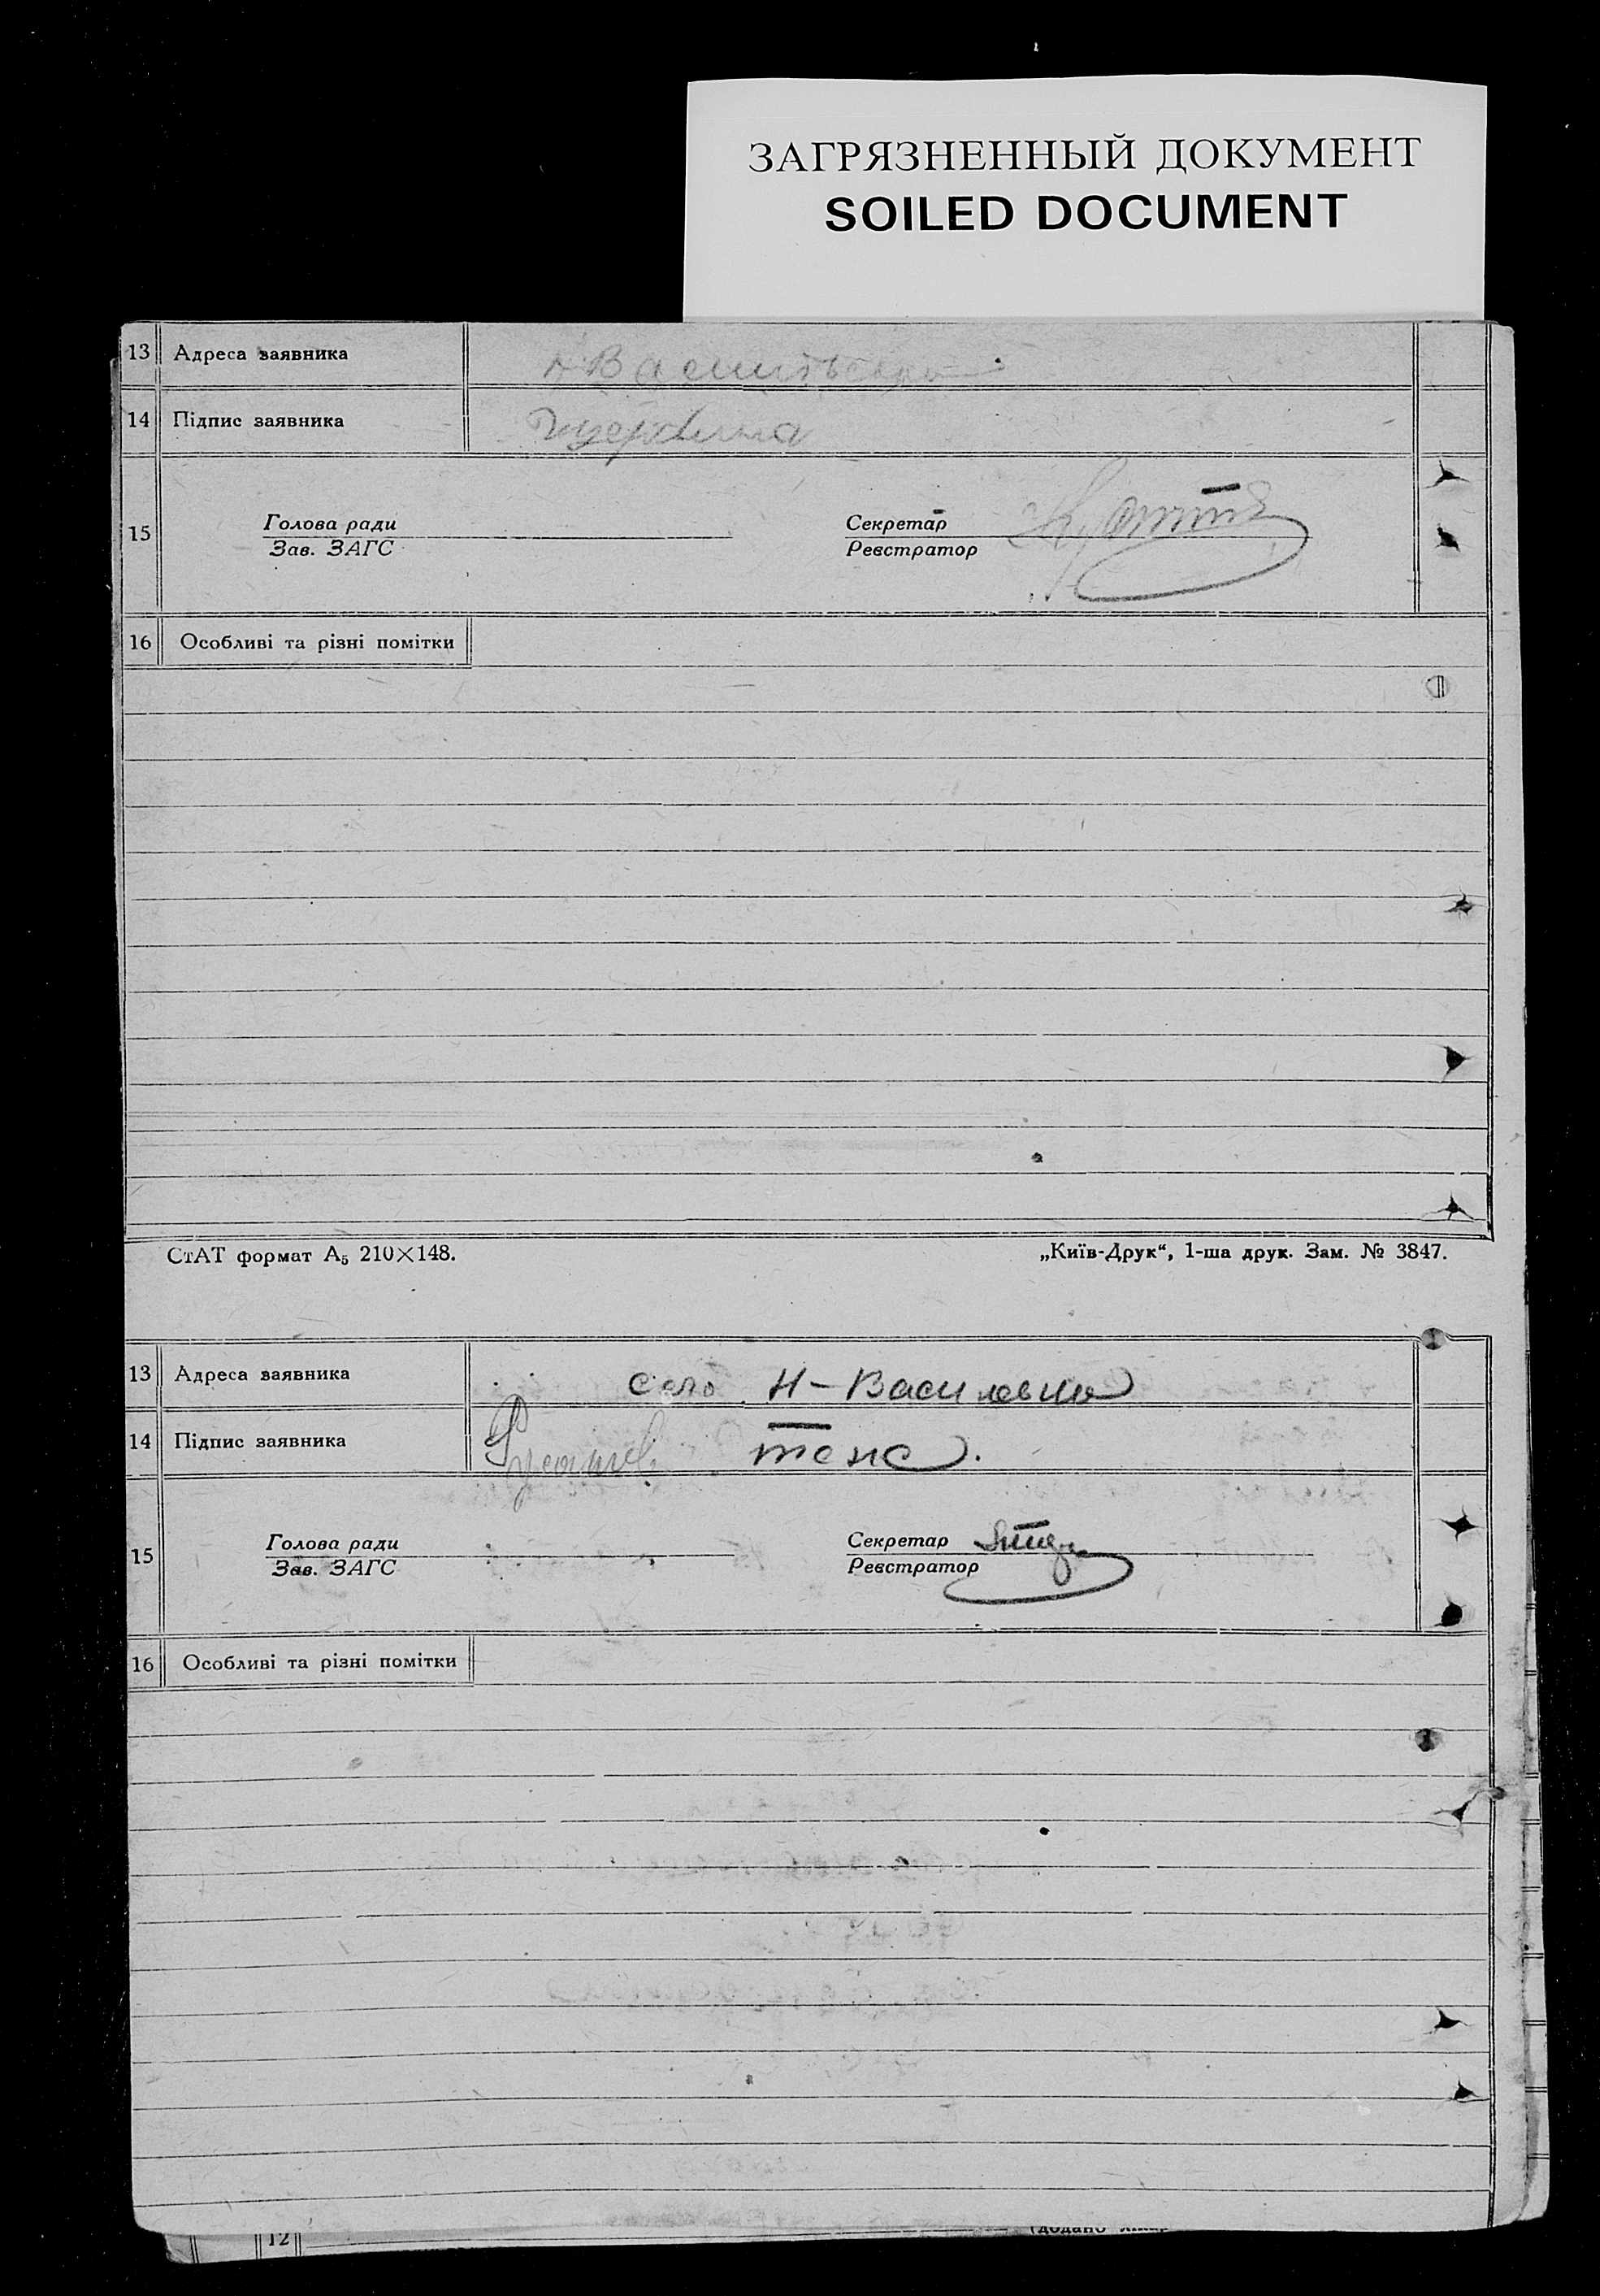 ЗАГРЯЗНЕННЫЙ ДОКУМЕНТ
SOILED DOCUMENT
13 Адреса заявника
14 Підпис заявника
15 Голова ради
Зав. ЗАГС
Секретар
Реєстратор
16 Особливі та різні помітки
СтАТ формат А₅ 210×148.
„Київ-Друк“, 1-ша друк. Зам. № 3847.
13 Адреса заявника село Н-Василевка
14 Підпис заявника
15 Голова ради
Зав. ЗАГС
Секретар
Реєстратор
16 Особливі та різні помітки
12
(додано